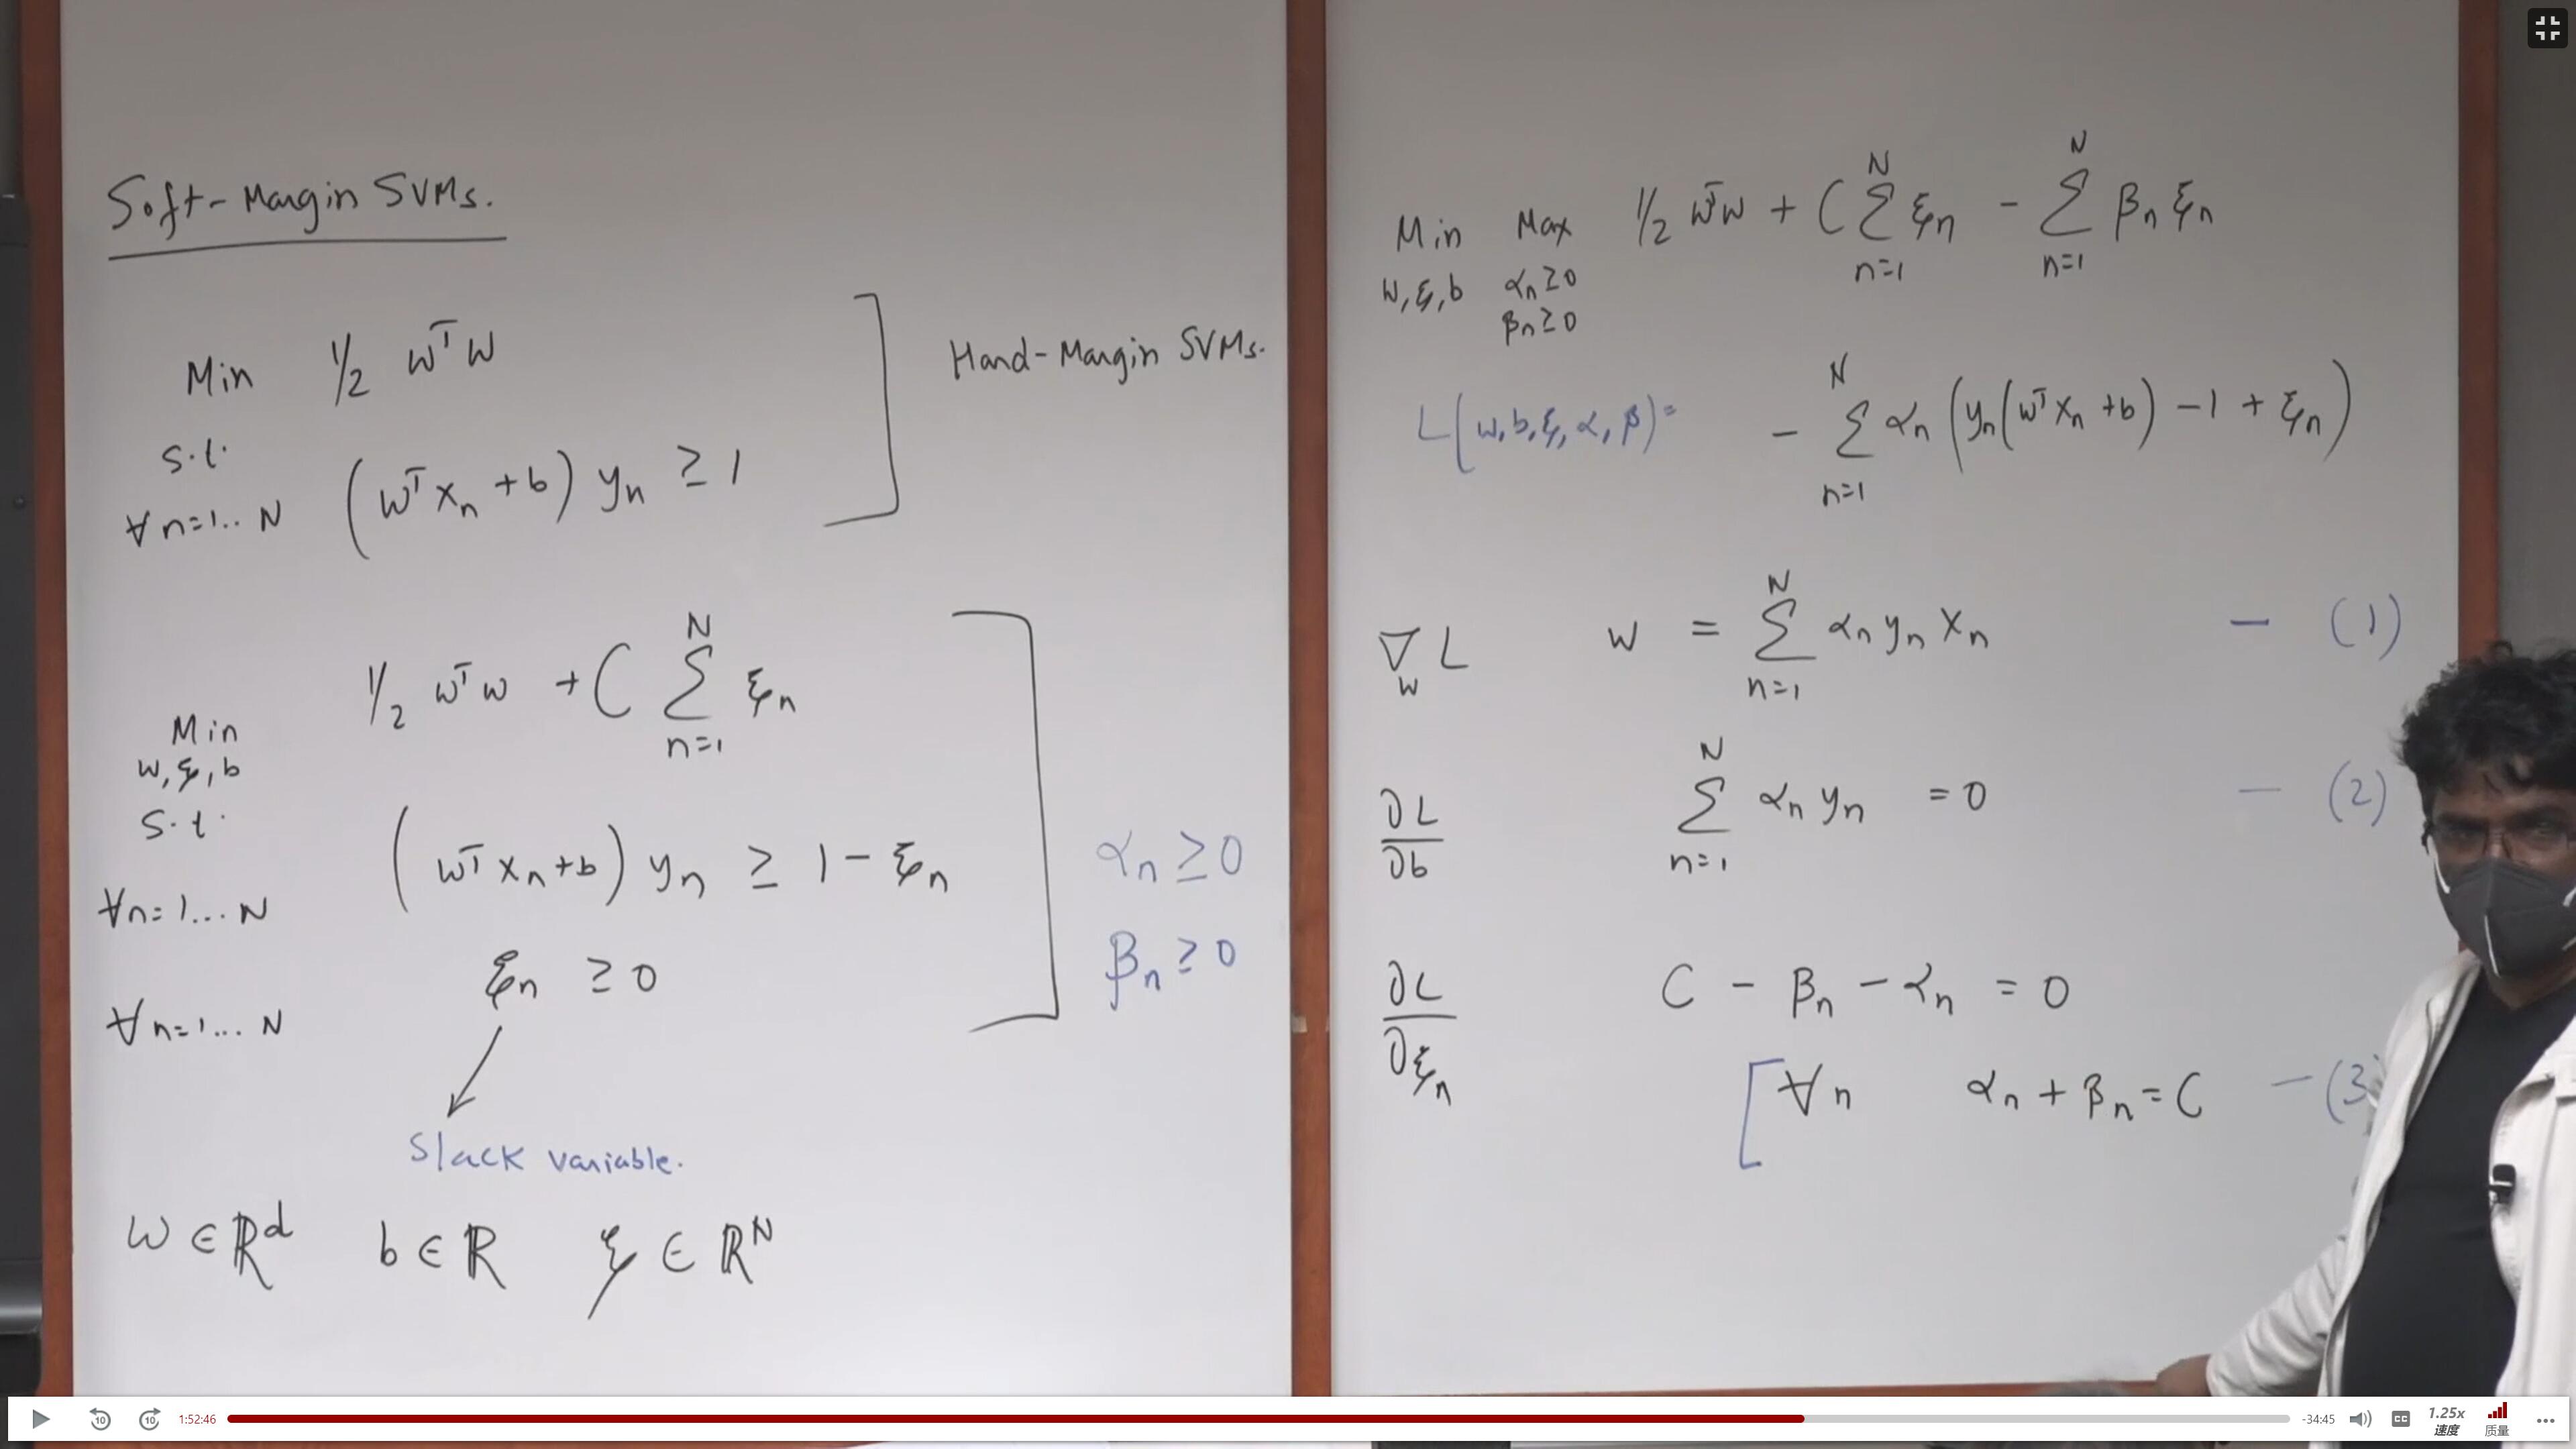 Soft-Margin SVMs.
Min 1/2 wᵀw
s.t.
∀n=1.. N (wᵀxₙ +b) yₙ ≥ 1
Hard-Margin SVMs.
Min 1/2 wᵀw + C ∑ₙ₌₁ᴺ ξₙ
w,ξ,b
s.t.
∀n=1...N (wᵀxₙ+b) yₙ ≥ 1 - ξₙ
αₙ ≥ 0
∀n=1...N ξₙ ≥ 0
βₙ ≥ 0
Slack variable.
w ∈ ℝᵈ b ∈ ℝ ξ ∈ ℝᴺ
Min Max 1/2 wᵀw + C ∑ₙ₌₁ᴺ ξₙ - ∑ₙ₌₁ᴺ βₙ ξₙ
w,ξ,b αₙ≥0
βₙ≥0
L(w,b,ξ,α,β)= - ∑ₙ₌₁ᴺ αₙ (yₙ(wᵀxₙ +b) -1 + ξₙ)
∇_w L w = ∑ₙ₌₁ᴺ αₙ yₙ xₙ — (1)
∂L/∂b ∑ₙ₌₁ᴺ αₙ yₙ = 0 — (2)
∂L/∂ξₙ C - βₙ - αₙ = 0
[∀n αₙ + βₙ = C — (3)
10 10 1:52:46 -34:45 CC 1.25x
速度 质量